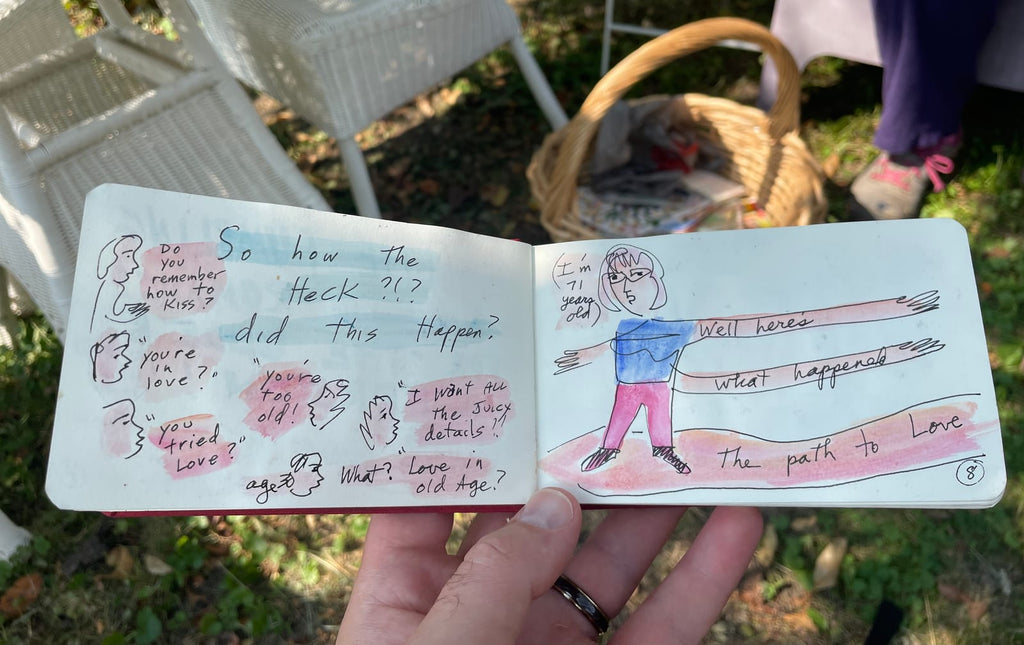 So how the
Heck ?!?
did this Happen?
Do
you
remember
how to
Kiss?
"you're
in
love?"
"you're
too
old!
"I want ALL
the Juicy
details!!
"you
tried
Love?"
age 30
What? "Love in
old Age?
(I'm
71
years
old)
Well here's
what happened
The path to Love
8